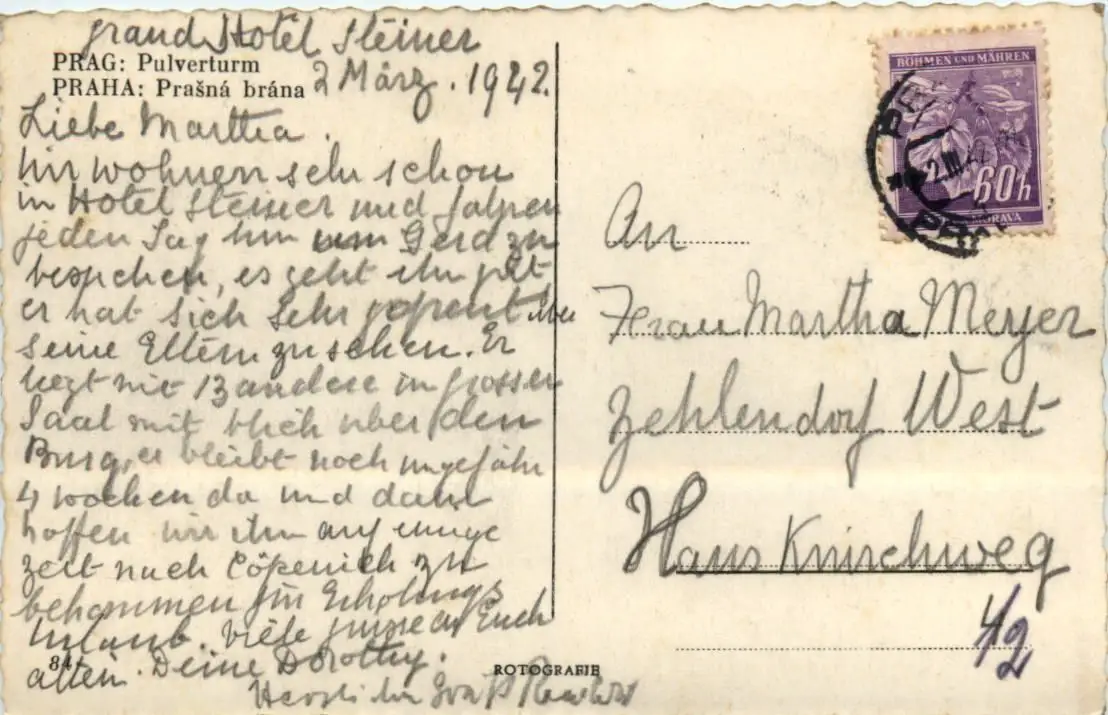 Grand Hotel Steiner
PRAG: Pulverturm
PRAHA: Prašná brána
2 März. 1942.
Liebe Martha.
Wir wohnen sehr schon
in Hotel Steiner und fahren
jeden Tag hin um Gerd zu
besuchen, es geht ihm gut
er hat sich sehr gefreut
seine Eltern zu sehen. Er
liegt mit 13 andere in grosser
Saal mit blick uber den
Burg, er bleibt noch ungefähr
4 wochen da und dann
hoffen wir ihn auf einige
zeit nach Cöpenick zu
bekommen für Erholungs
Urlaub. Viele grüsse an Euch
allen. Deine Dorothy.
84
ROTOGRAFIE
BÖHMEN UND MÄHREN
60h
MORAVA
2.III.42
An
Frau Martha Meyer
Zehlendorf West
Hans
42